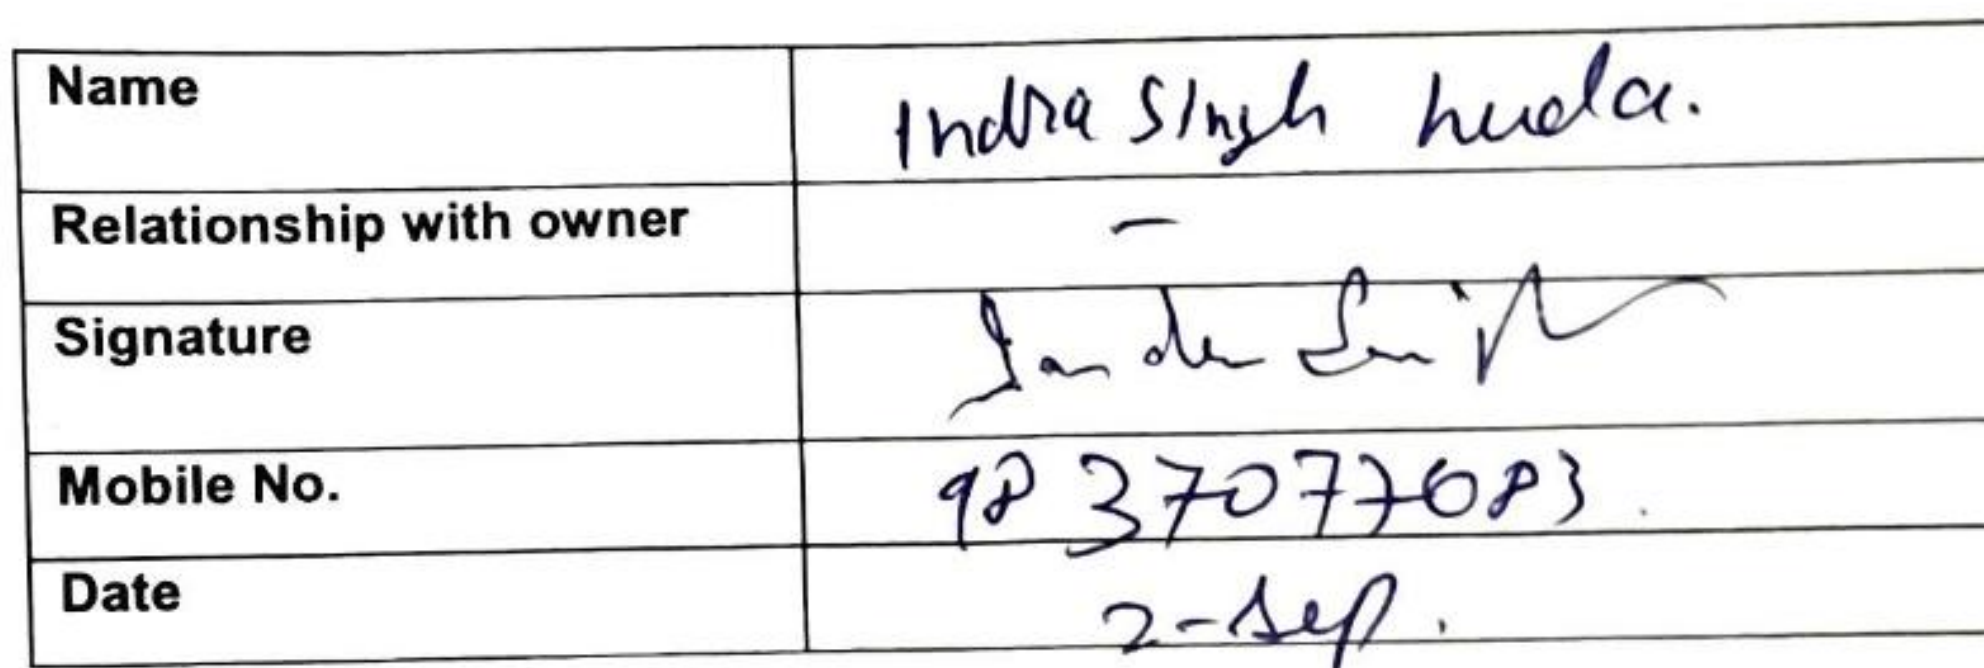 Name Indra Singh huda.
Relationship with owner –
Signature
Mobile No. 9837077683.
Date 2-Sep.